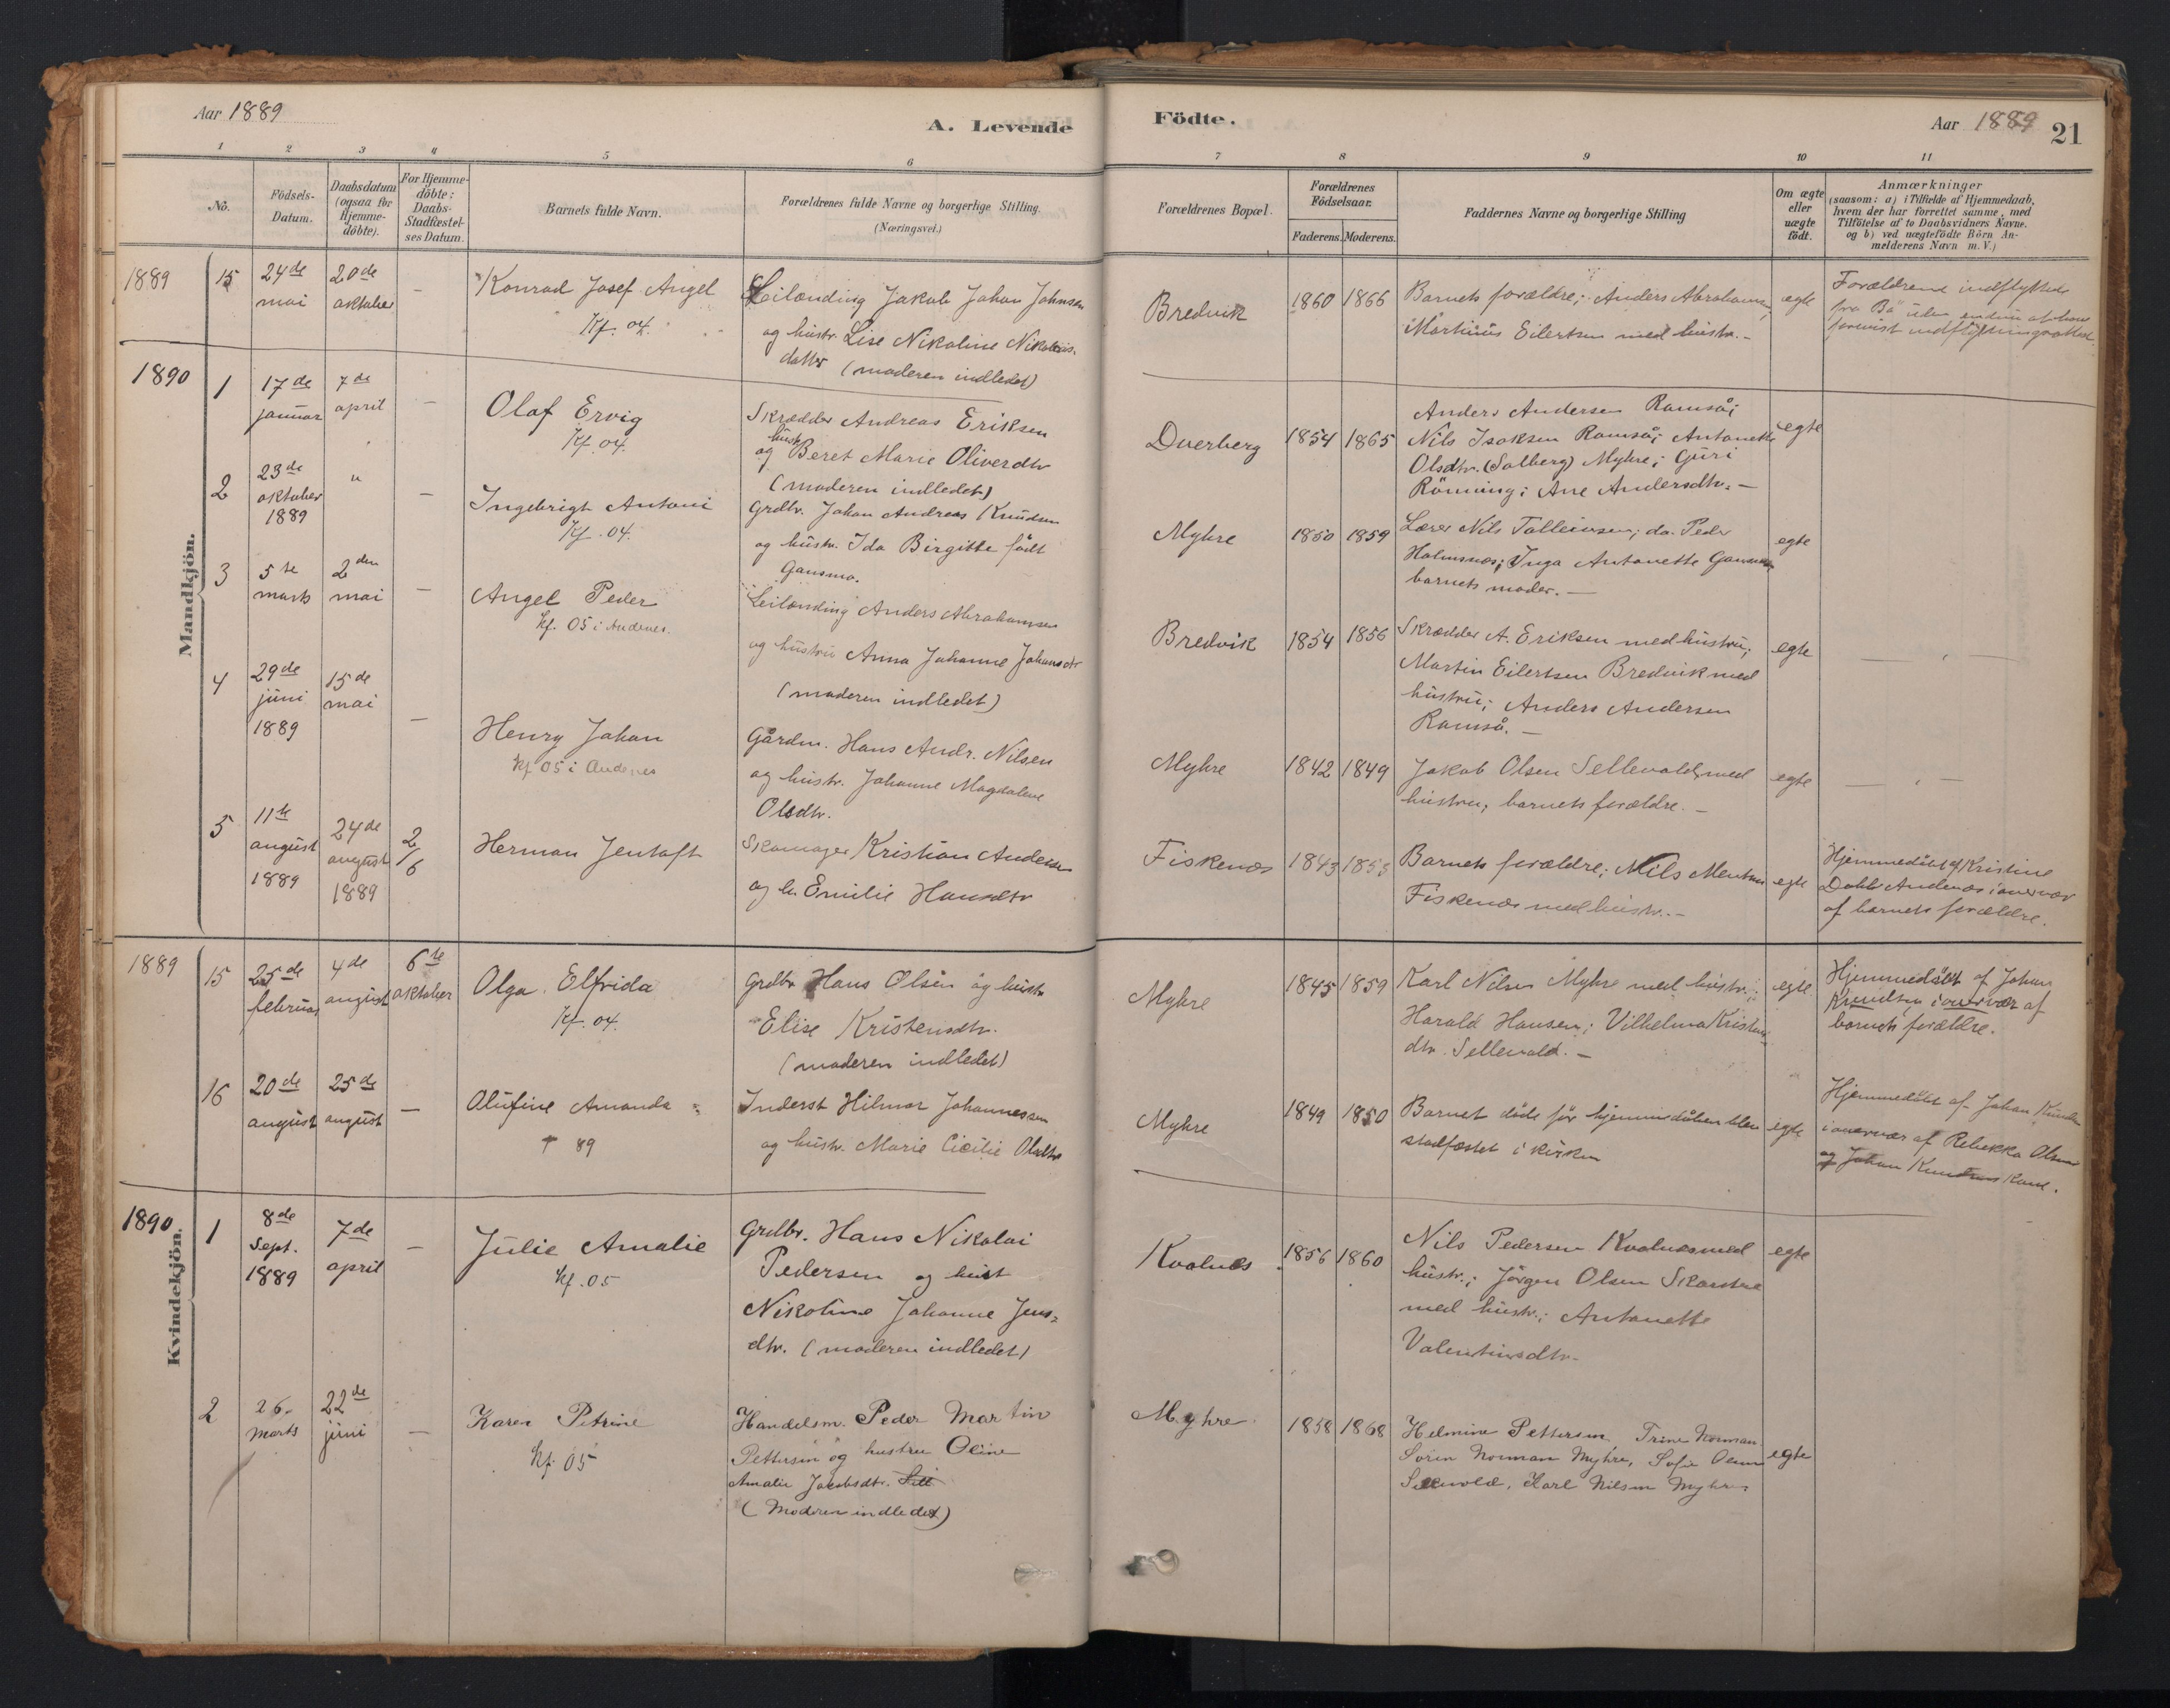 Aar 1889
A. Levende
Födte.
Aar 1889
21
1 2 3 4 5 6 7 8 9 10 11
No.
Födsels-
Datum.
Daabsdatum
(ogsaa for
Hjemme-
döbte).
For Hjemme-
döbte:
Daabs-
Stadfæstel-
ses Datum.
Barnets fulde Navn.
Forældrenes fulde Navne og borgerlige Stilling.
(Næringsvei.)
Forældrenes Bopæl.
Forældrenes
Födselsaar.
Faderens. Moderens.
Faddernes Navne og borgerlige Stilling
Om ægte
eller
uægte
födt.
Anmærkninger
(saasom: a) i Tilfælde af Hjemmedaab,
hvem der har forrettet samme, med
Tilföielse af to Daabsvidners Navne.
og b) ved uægtefödte Börn An-
melderens Navn m. V.)
Mandkjön.
1889
15
24de
mai
20de
oktober
—
Konrad Josef Angel
Kf. 04.
Leilænding Jakob Johan Johnsen
og hustr. Lise Nikoline Nikolais-
datter (moderen indledet)
Bredvik
1860 1866
Barnets forældre; Anders Abrahamsen;
Martinus Eilertsen med hustr. -
egte
Forældrene indflyttede
fra Bö uden endnu at have
forevist indflytningsattest
1890
1
17de
januar
7de
april
—
Olaf Ervig
Kf. 04.
Skrædder Andreas Eriksen
og hustr. Beret Marie Oliverdtr
(moderen indledet)
Dverberg
1854 1865
Anders Andersen Ramså;
Nils Isaksen Ramså; Antonette
Olsdtr. (Solberg) Myhre; Guri
Rönning; Ane Andersdtr. —
egte
2
23de
oktober
1889
"
—
Ingebrigt Antoni
Kf. 04.
Grdbr. Johan Andreas Knudsen
og hustr. Ida Birgitte födt
Gansmo.
Myhre
1850 1859
Lærer Nils Tolleivsen; do. Peder
Holmsnes; Inga Antonette
barnets moder. —
egte
3
5te
marts
2den
mai
—
Angel Peder
Kf. 05 i Andenes.
Leilænding Anders Abrahamsen
og hustru Anna Johanne Johansdtr
(moderen indledet)
Bredvik
1854 1856
Skrædder A. Eriksen med hustru;
Martin Eilertsen Bredvik med
hustru; Anders Andersen
Ramså. —
egte
4
29de
juni
1889
15de
mai
—
Henry Johan
Kf 05 i Andenes
Gårdm. Hans Andr. Nilsen
og hustr. Johanne Magdalene
Olsdtr.
Myhre
1842 1849
Jakob Olsen Sellevold med
hustru, barnets forældre. —
egte
5
11te
august
1889
24de
august
1889
2/6
Herman Jentoft
Skomager Kristian Andersen
og h. Emilie Hansdtr
Fiskenes
1843 1853
Barnets forældre; Nils Mentsen
Fiskenes med hustr. -
egte
Hjemmedöbt af Kristine
Dahl Andenes i overvær
af barnets forældre.
Kvindekjön.
1889
15
25de
februar
4de
august
6te
oktober
Olga Elfrida
Kf. 04.
Grdbr Hans Olsen og hustr
Elise Kristensdtr.
(moderen indledet)
Myhre
1845 1859
Karl Nilsen Myhre med hustr.;
Harald Hansen; Vilhelma Kristens
dtr. Sellevold. —
egte
Hjemmedöbt af Johan
Knudsen i overvær af
barnets forældre.
16
20de
august
25de
august
—
Olufine Amanda
† 89
Inderst Hilmar Johannessen
og hustr. Marie Cicilie Olsdtr
Myhre
1849 1850
Barnet döde för hjemmedåben blev
stadfæstet i kirken
egte
Hjemmedöbt af Johan Knudsen
i overvær af Rebekka Olsen
og Johan Knudsens kone.
1890
1
8de
Sept.
1889
7de
april
—
Julie Amalie
Kf. 05
Grdbr. Hans Nikolai
Pedersen og hust
Nikoline Johanne Jens-
dtr. (moderen indledet)
Kvalnes
1856 1860
Nils Pedersen Kvalnes med
hustr.; Jörgen Olsen Skarstein
med hustr.; Antonette
Valentinsdtr.
egte
2
26.
Marts
22de
juni
—
Karen Petrine
Kf. 05
Handelsm. Peder Martin
Pettersen og hustru Oline
Amalie Jacobsdtr.
(Moderen indledet)
Myhre
1858 1868
Helmine Pettersen Trine Norman
Sören Norman Myhre, Sofie Olsen
Sellevold, Karl Nilsen Myhre
egte